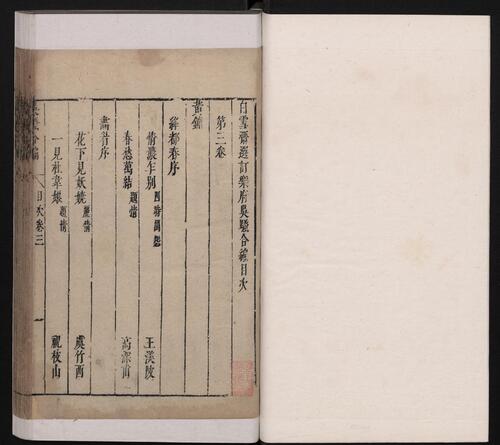 白雪齋選訂樂府吳騷合編目次
第三卷
黃鐘
絳都春序
情濃乍別 四時閨怨 王渼陂
春愁萬結 題情 高深甫
畫眉序
花下見妖嬈 麗情 虞竹西
一見杜韋娘 題情 祝枝山
目次卷三 一